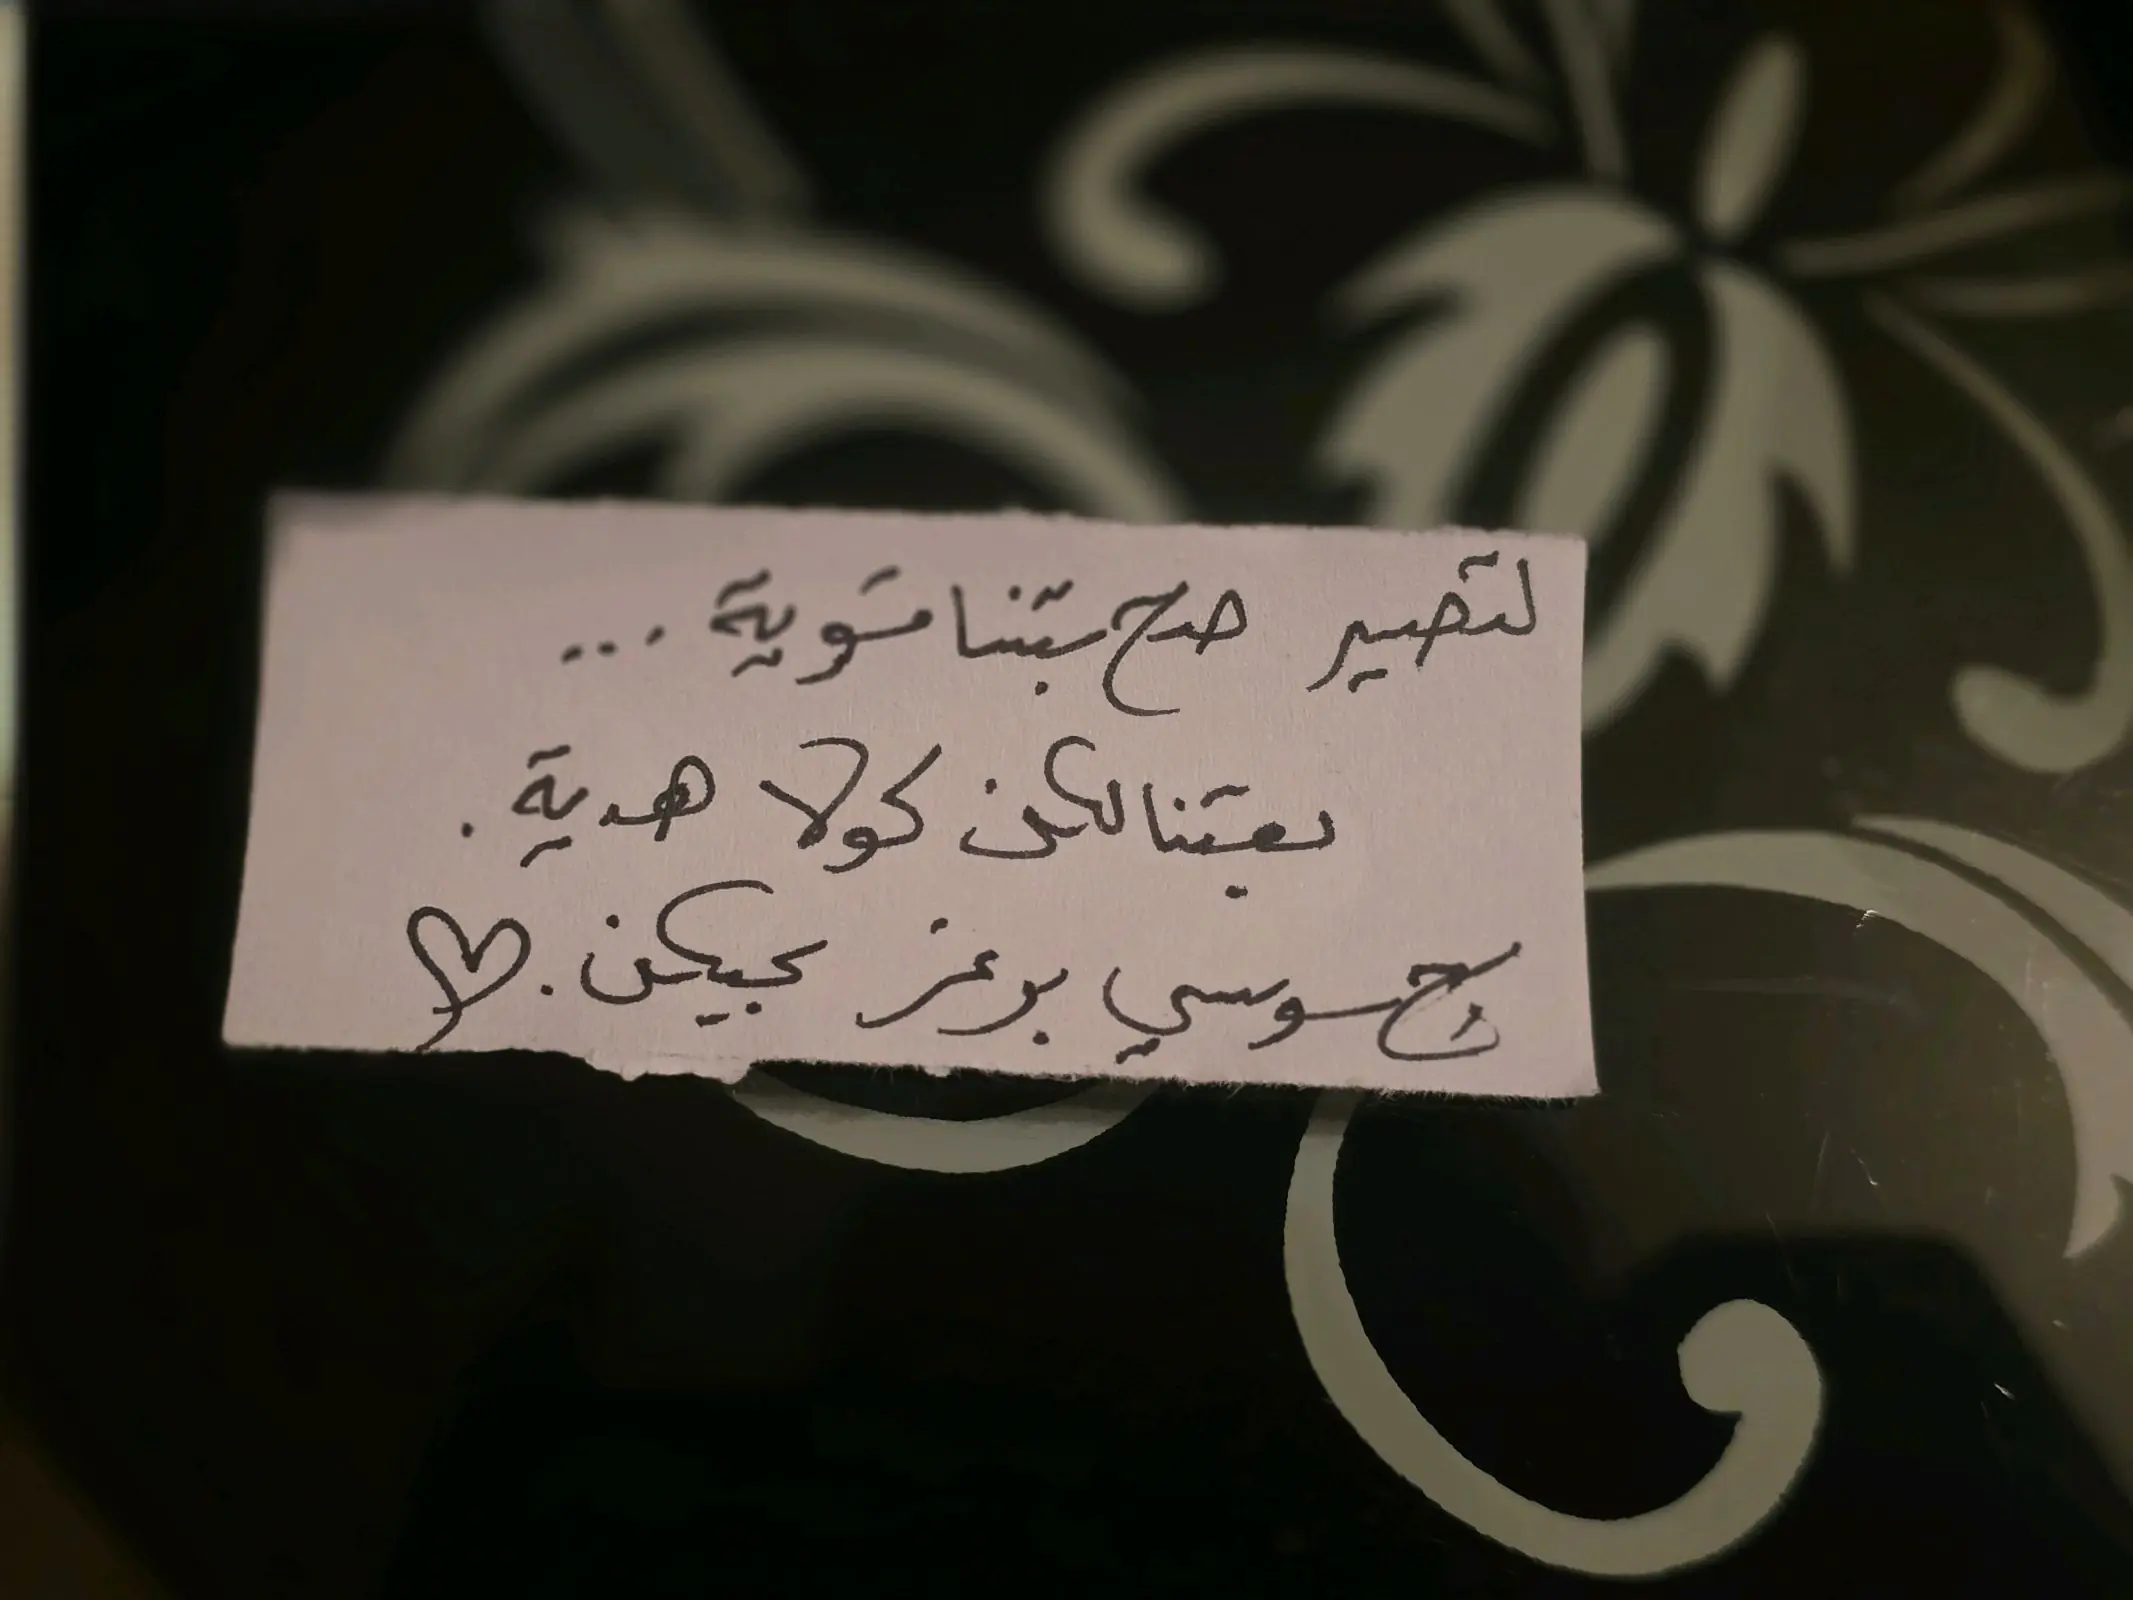 لتصير صحبتنا قوية ...
بعتنالكن كولا هدية .
جوسي برغر بحبكن . ♡